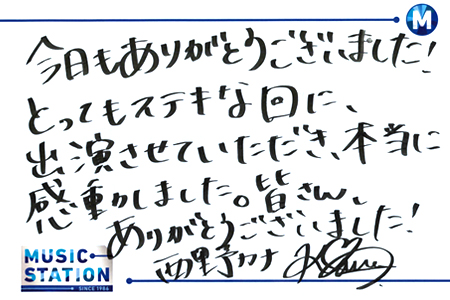 M
今日もありがとうございました!
とってもステキな回に、
出演させていただき、本当に
感動しました。皆さん、
ありがとうございました!
西野カナ
MUSIC
STATION
SINCE 1986